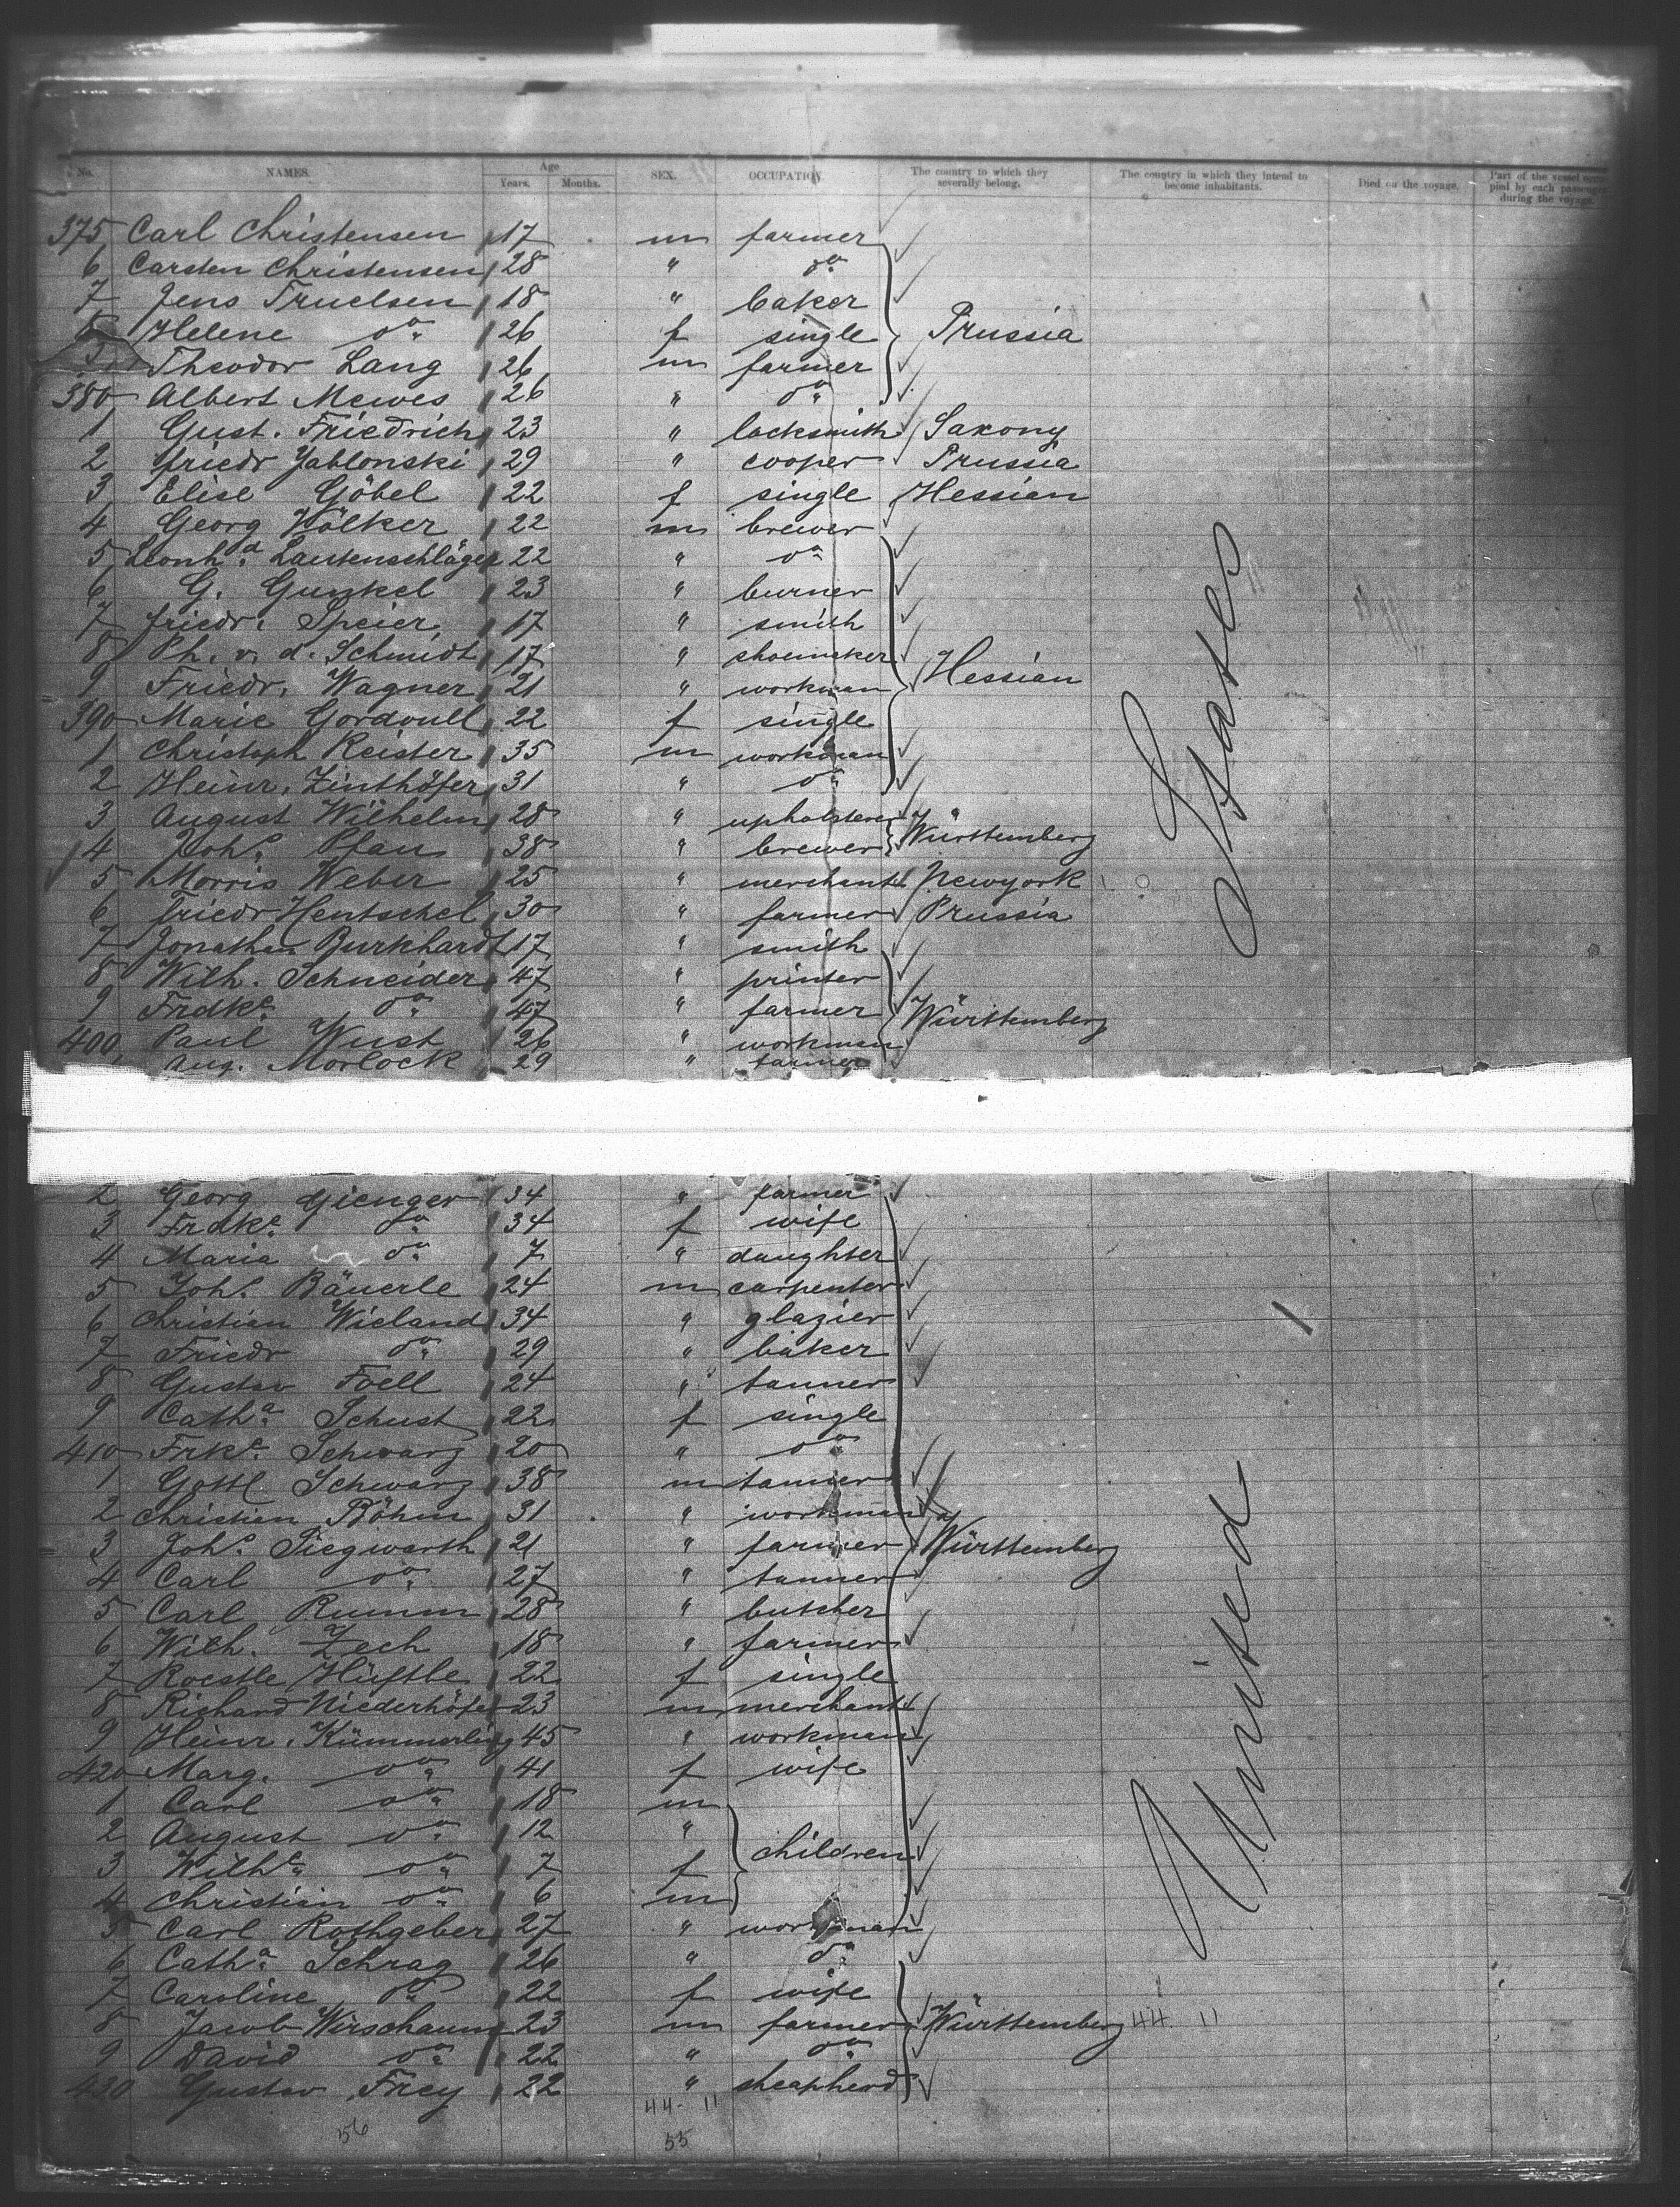 No. NAMES. Age Years. Months. SEX. OCCUPATION. The country to which they severally belong. The country in which they intend to become inhabitants. Died on the voyage. Part of the vessel occupied by each passenger during the voyage.
375 Carl Christensen 17 m farmer
6 Carsten Christensen 28 " do
7 Jens Truelsen 18 " baker
8 Helene do 26 f single Prussia
9 Theodor Lang 26 m farmer
380 Albert Mewes 26 " do
1 Gust. Friedrich 23 " locksmith Saxony
2 Friedr Jablonski 29 " cooper Prussia
3 Elise Göbel 22 f single Hessian
4 Georg Völker 22 m brewer
5 Leonhd. Lautenschläger 22 " do
6 G. Gunkel 23 " burner
7 Friedr. Speier 17 " smith
8 Ph. v. d. Schmidt 17 " shoemaker Hessian
9 Friedr. Wagner 21 " workman
390 Marie Gordoull 22 f single
1 Christoph Reister 35 m workman
2 Heinr. Zinthöfer 31 " do
3 August Wilhelm 28 " upholsterer Württemberg
4 Johs. Pfau 38 " brewer
5 Morris Weber 25 " merchant Newyork
6 Friedr Hentschel 30 " farmer Prussia
7 Jonathan Burkhardt 17 " smith
8 Wilh. Schneider 47 " printer
9 Frdke. do 47 " farmer Württemberg
400 Paul Wust 26 " workman
Aug. Morlock 29 " farmer
2 Georg Gienger 34 " farmer
3 Frdke. do 34 f wife
4 Maria do 7 " daughter
5 Johs. Bäuerle 24 m carpenter
6 Christian Wieland 34 " glazier
7 Friedr do 29 " baker
8 Gustav Foell 24 " tanner
9 Catha. Schust 22 f single
410 Frke. Schwarz 20 " do
1 Gottl. Schwarz 38 m tanner
2 Christian Böhm 31 " workman
3 Johs. Siegwarth 21 " farmer Württemberg
4 Carl do 27 " tanner
5 Carl Rumm 28 " butcher
6 Wilh. Zech 18 " farmer
7 Roestle Hüftle 22 f single
8 Richard Niederhöfer 23 m merchant
9 Heinr. Kümmerling 45 " workman
420 Marg. do 41 f wife
1 Carl do 18 m
2 August do 12 " children
3 Wilhe. do 7 f
4 Christian do 6 m
5 Carl Rothgeber 27 " workman
6 Catha. Schrag 26 " do
7 Caroline do 22 f wife
8 Jacob Wirschaum 23 m farmer Württemberg 44. 11
9 David do 22 " do
430 Gustav Frey 22 " sheapherd
44- 11
56 55
United States